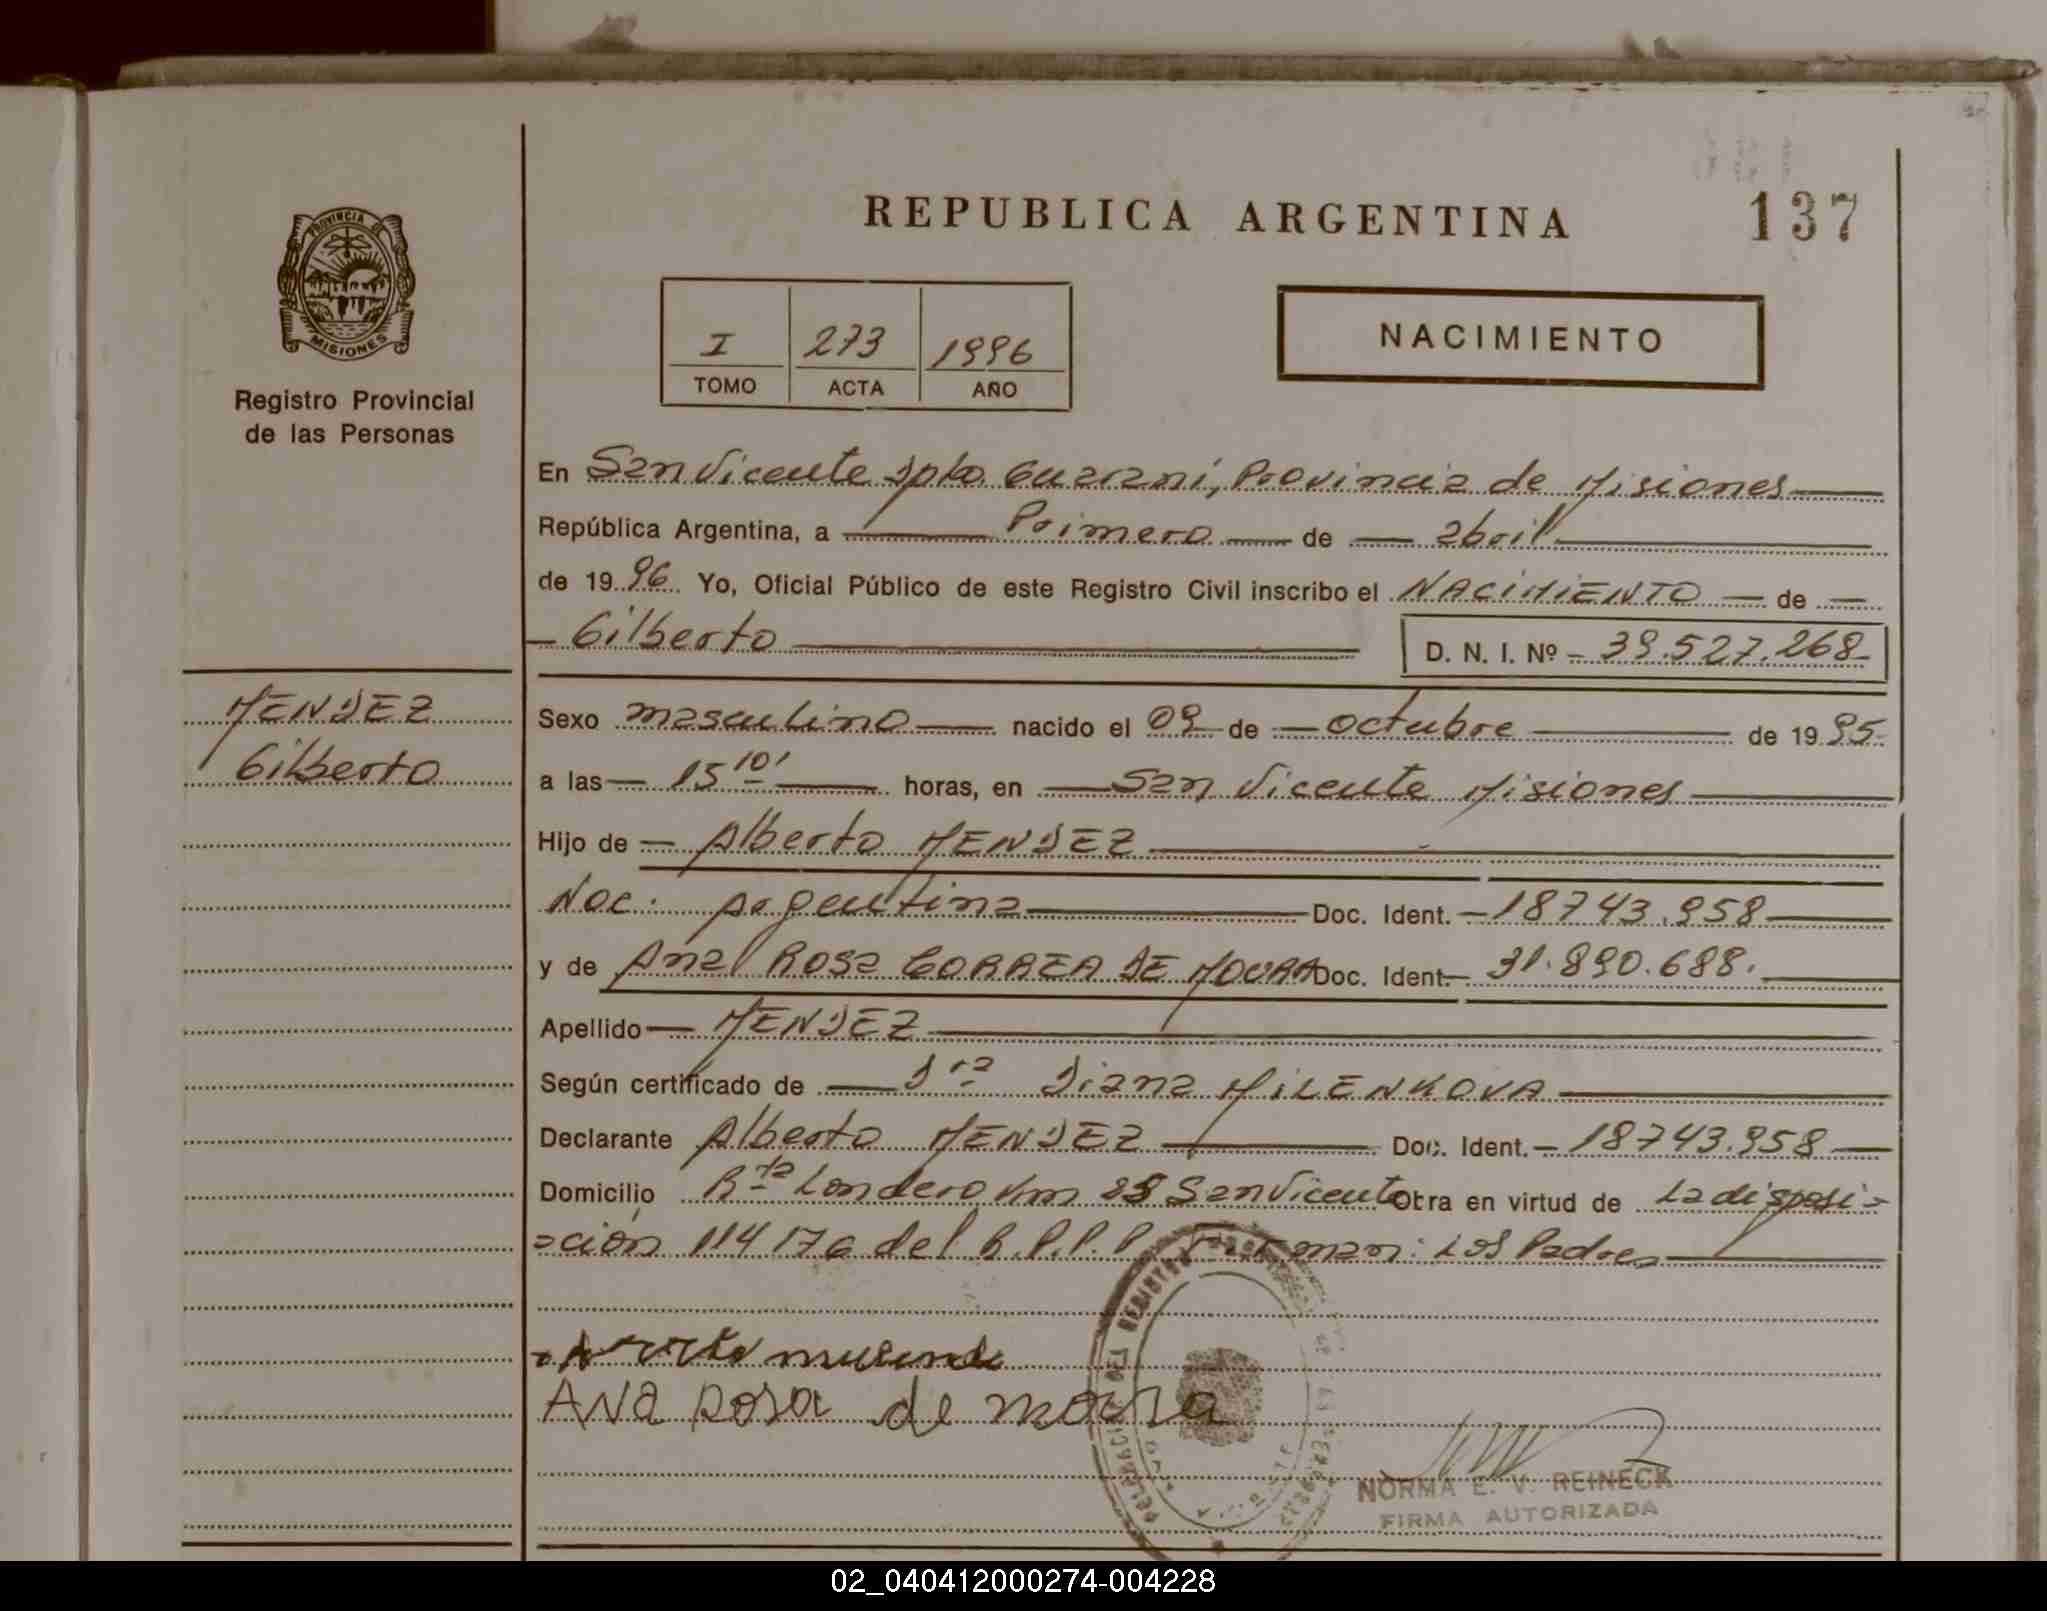 REPUBLICA ARGENTINA
137
PROVINCIA DE
MISIONES
Registro Provincial
de las Personas
I 273 1996
TOMO ACTA AÑO
NACIMIENTO
En San Vicente Dpto. Guaraní, Provincia de Misiones
República Argentina, a Primero de abril
de 1996 Yo, Oficial Público de este Registro Civil inscribo el NACIMIENTO de
Gilberto D. N. I. Nº 39.527.268
MENDEZ
Gilberto
Sexo masculino nacido el 09 de octubre de 1995
a las 15 10' horas, en San Vicente Misiones
Hijo de Alberto MENDEZ
Nac. argentina Doc. Ident. 18743.958
y de Ana Rosa CORREA DE MOURA Doc. Ident. 31.890.688.
Apellido MENDEZ
Según certificado de Dra Diana MILENKOVA
Declarante Alberto MENDEZ Doc. Ident. 18743.958
Domicilio Londero km San Vicente Obra en virtud de la disposi=
=ción 114 del R.P.P.P. Firman: Los Padres
Ana Rosa de moura
NORMA E. V. REINECK
FIRMA AUTORIZADA
02_040412000274-004228